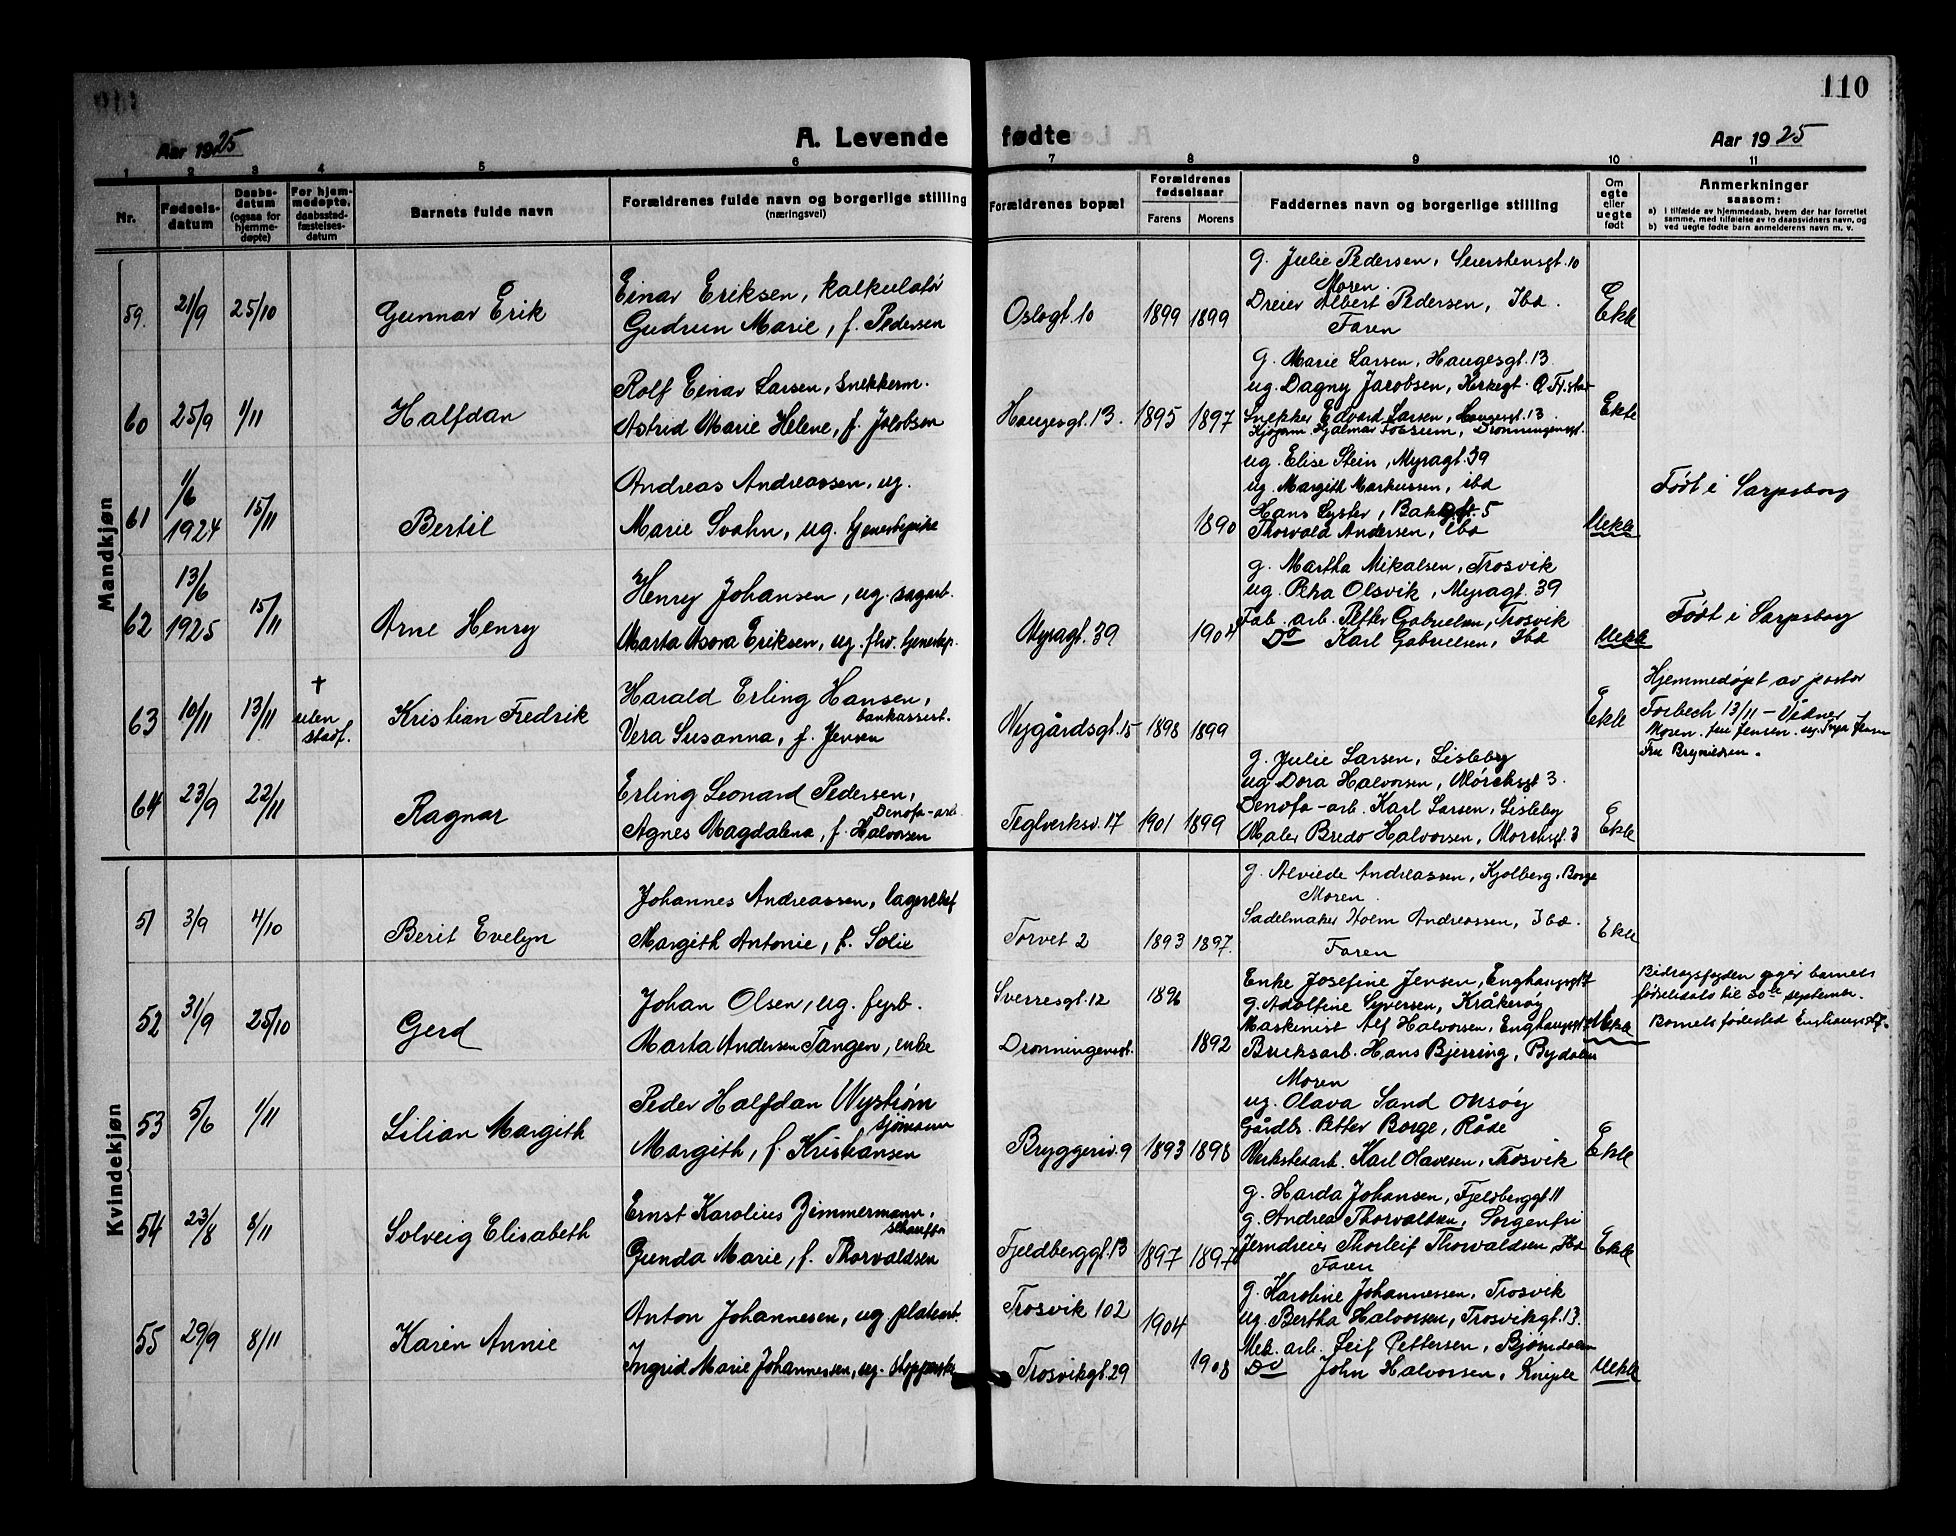 110
Aar 1925
A. Levende fødte
Aar 1925
1 2 3 4 5 6 7 8 9 10 11
Nr.
Fødsels-
datum
Daabs-
datum
(ogsaa for
hjemme-
døpte)
For hjem-
medøpte,
daabsstad-
fæstelses-
datum
Barnets fulde navn
Forældrenes fulde navn og borgerlige stilling
(næringsvei)
Forældrenes bopæl
Forældrenes
fødselsaar
Farens Morens
Faddernes navn og borgerlige stilling
Om
egte
eller
uegte
født
Anmerkninger
saasom:
a) i tilfælde av hjemmedaab, hvem der har forrettet
samme, med tilføielse av to daabsvidners navn, og
b) ved uegte fødte barn anmelderens navn m. v.
Mandkjøn
59. 21/9 25/10 Gunnar Erik
Einar Eriksen, kalkulatør
Gudrun Marie, f. Pedersen
Oslogt. 10 1899 1899
g. Julie Pedersen, Seierstensgt. 10
Moren.
Dreier Albert Pedersen, Ibd.
Faren
Ekte
60 25/9 1/11 Halfdan
Rolf Einar Larsen, snekkerm.
Astrid Marie Helene, f. Jacobsen
Haugesgt. 13. 1895 1897
g. Marie Larsen, Haugesgt. 13
ug. Dagny Jacobsen, Kirkegt.
Snekker Edvard Larsen, Haugesgt. 13.
Hjalmar Fossum, Dronningensgt.
Ekte
61 1/6 1924 15/11 Bertil
Andreas Andreassen, ug.
Marie Svahn, ug. tjenestepike
1890
ug. Elise Stein, Myragt. 39
ug. Margith Markussen, ibd
Hans Lyster, 5
Thorvald Andersen, ibd
Uekte
Født i Sarpsborg
62 13/6 1925 15/11 Arne Henry
Henry Johansen, ug. sagarb.
Marta Asora Eriksen, ug. fhv. tjenestep.
Myragt. 39 1904
g. Martha Mikalsen, Trosvik
ug. Petra Olsvik, Myragt. 39
Fab. arb. Petter Gabrielsen, Trosvik
Do Karl Gabrielsen, Ibd
Uekte
Født i Sarpsborg
63 10/11 13/11 † uten
stadf.
Kristian Fredrik
Harald Erling Hansen,
bankassist.
Vera Susanna, f. Jensen
Nygårdsgt. 15 1898 1899
Ekte
Hjemmedøpt av pastor
Forbech 13/11 - Vidner
Moren. fru Jensen. ug.
Fru Brynildsen.
64 23/9 22/11 Ragnar
Erling Leonard Pedersen,
Denofa-arb
Agnes Magdalena, f. Halvorsen
Teglverksv. 17 1901 1899
g. Julie Larsen, Lisleby
ug Dora Halvorsen, Mørchsgt 3.
Denofa-arb. Karl Larsen, Lisleby
Maler Bredo Halvorsen, Mørchsgt. 3
Ekte
Kvindekjøn
51 3/9 4/10 Berit Evelyn
Johannes Andreassen, lagerchef
Margith Antonie, f. Solie
Torvet 2 1893 1897.
g. Alviede Andreassen, Kjølberg, Borge
Moren.
Sadelmaker Holm Andreassen, Ibd.
Faren
Ekte
52 31/9 25/10 Gerd
Johan Olsen, ug. fyrb.
Marta Andersen Tangen, enke
Sverresgt. 12 1896
Dronningensgt. 1892
Enke Josefine Jensen, Enghaugsgt 7
g. Adolfine Syversen, Kråkerøy
Maskinist Alf Halvorsen, Enghaugsgt 7
Bruksarb. Hans Bjerring, Bydalen
Uekte
Bidragsfogden opgir barnets
fødselsdato til 30te september.
Barnets fødested Enghaugsgt 7.
53 5/6 1/11 Lilian Margith
Peder Halfdan Nystrøm
sjømann
Margith, f. Kristiansen
Bryggeriv. 9 1893 1898
Moren
ug. Olava Sand Onsøy
Gårdbr. Petter Borge, Råde
Verkstedarb. Karl Olavesen, Trosvik
Ekte
54 23/8 8/11 Solveig Elisabeth
Ernst Karolius Zimmermann,
Gunda Marie, f. Thorvaldsen
Fjeldberggt. 13 1897 1897
g. Harda Johansen, Fjeldberggt. 11
g. Andrea Thorvaldsen, Sorgenfri
Jerndreier Thorleif Thorvaldsen, Ibd
Faren
Ekte
55 29/9 8/11 Karin Annie
Anton Johannesen, ug platearb.
Ingrid Marie Johannessen, ug.
Trosvik 102 1904
Trosvikgt. 29 1908
g. Karoline Johannessen, Trosvik
ug. Bertha Halvorsen, Trosvikgt. 13.
Mek. arb. Leif Pettersen, Bjørndalen
Do John Halvorsen, Kniple
Uekte